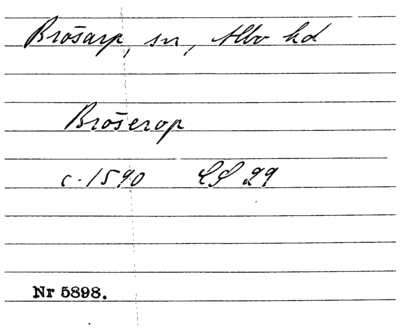 Brösarp, sn, Albo hd
Bröserop
c. 1590 LS 29
Nr 5898.